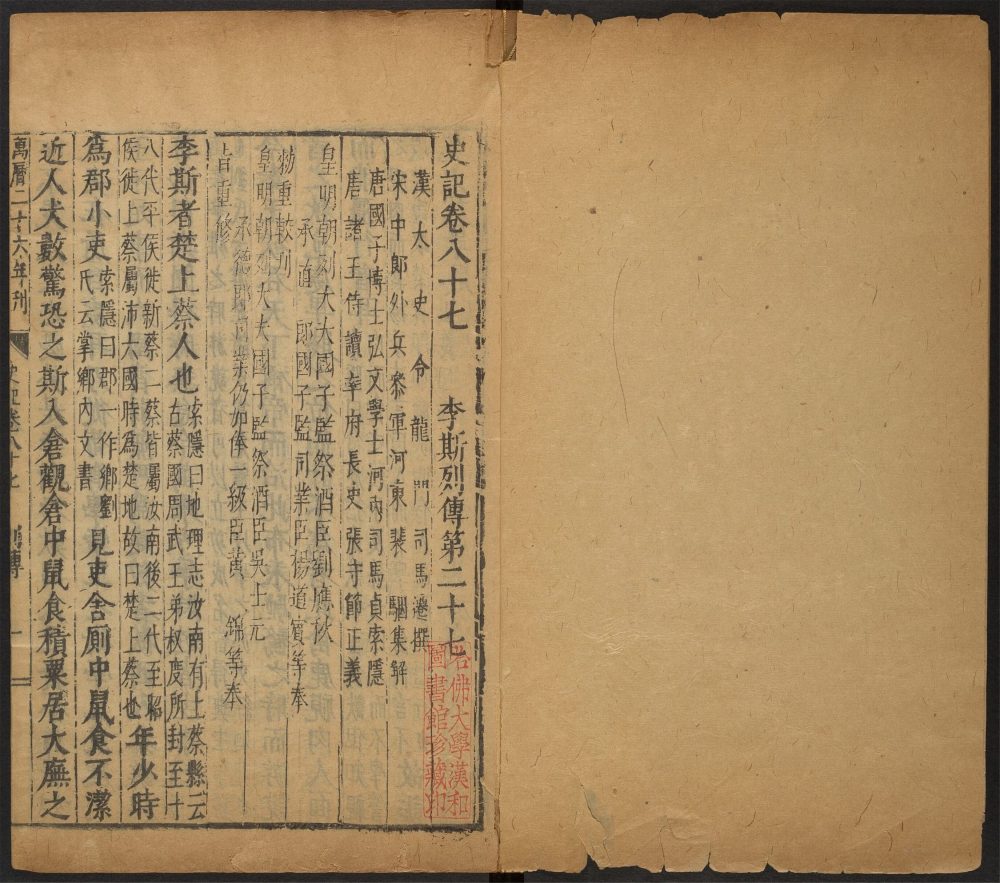 史記卷八十七 李斯列傳第二十七
漢太史令龍門司馬遷撰
宋中郎外兵叅軍河東裴駰集解
唐國子博士弘文學士河內司馬貞索隱
唐諸王侍讀率府長史張守節正義
皇明朝列大夫國子監祭酒臣劉應秋
承直郎國子監司業臣楊道賔等奉
勑重較刊
皇明朝列大夫國子監祭酒臣吳士元
承德郎司業仍加俸一級臣黃錦等奉
旨重修
李斯者楚上蔡人也
索隱曰地理志汝南有上蔡縣云
古蔡國周武王弟叔度所封至十
八代平侯徙新蔡二蔡皆屬汝南後二代至昭
侯徙上蔡屬沛六國時爲楚地故曰楚上蔡也
年少時
爲郡小吏
索隱曰郡一作鄉劉
氏云掌鄉內文書
見吏舍廁中鼠食不潔
近人犬數驚恐之斯入倉觀倉中鼠食積粟居大廡之
萬曆二十六年刊
史記卷八十七
列傳
一
若佛大學漢和
圖書館珍藏印